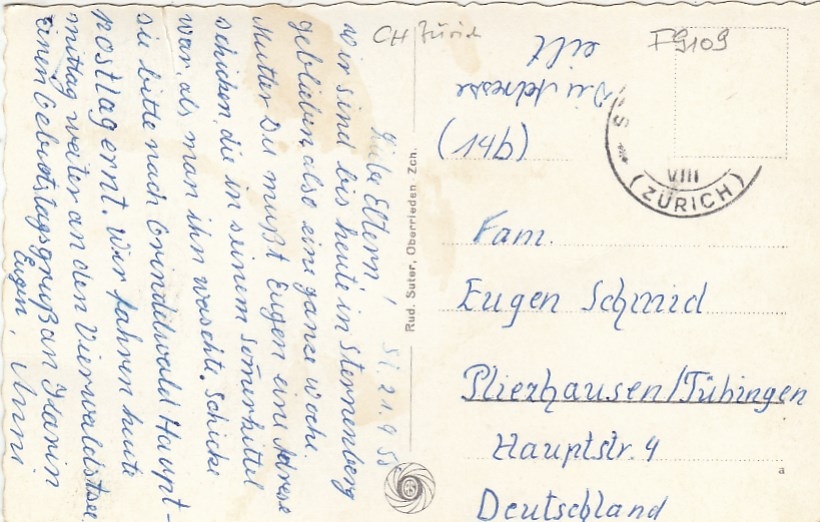 Liebe Eltern!
wir sind bis heute in Sternenberg
geblieben, also eine ganze Woche.
Mutter Du mußt Eugen eine Adresse
schicken, die in seinem Som̄erkittel
war, als man ihn waschte. Schicke
sie bitte nach Grindelwald Haupt-
postlagernt. Wir fahren heute
mittag weiter an den Vierwaldstsee.
Einen Geburtstagsgruß an Karin
Eugen, Anni
Rud. Suter, Oberrieden Zch.
CH Zürich
F9109
Die Adresse
eilt
(14b)
VIII
(ZÜRICH)
Fam.
Eugen Schmid
Pliezhausen/Tübingen
Hauptstr. 4
Deutschland
a